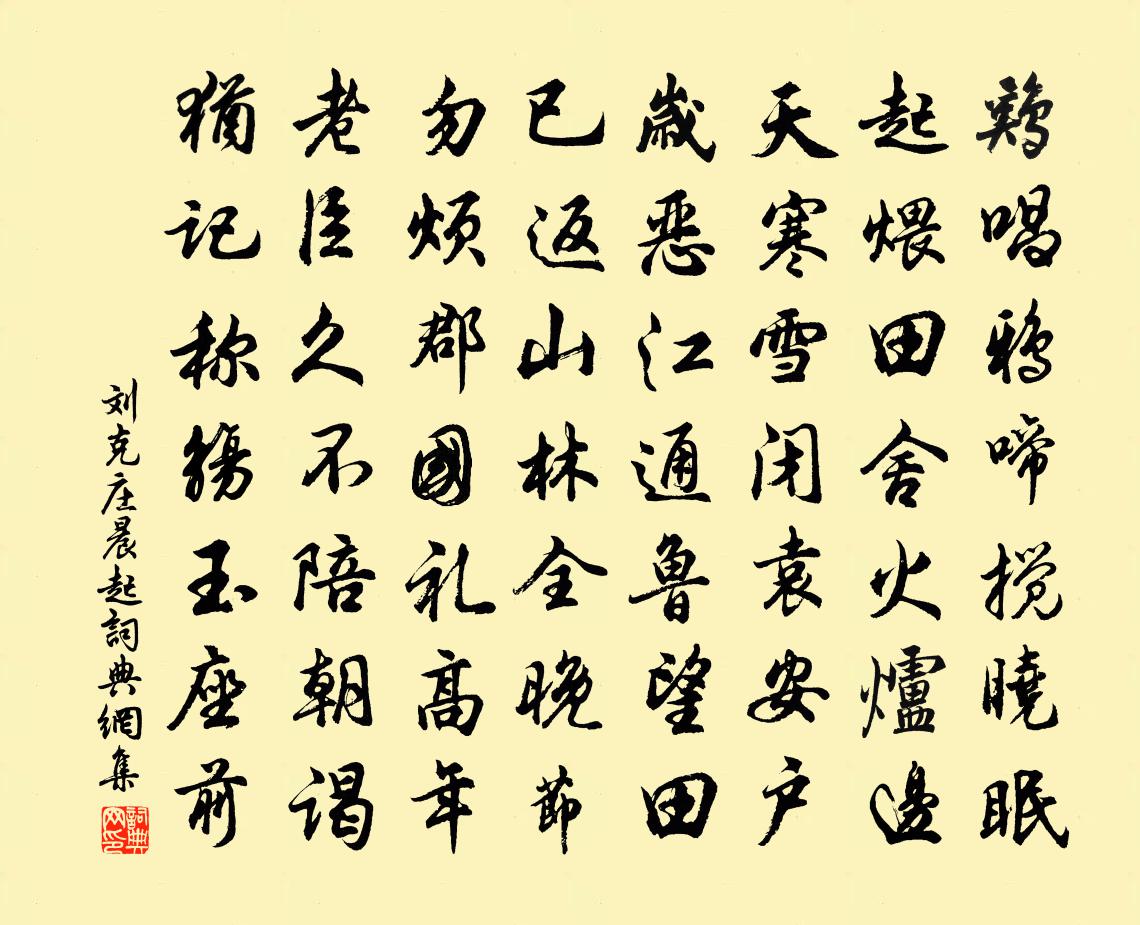 鶏唱鴉啼搅曉眠
起煨田舍火爐邊
天寒雪闭袁安户
歳惡江通魯望田
已返山林全晚節
勿烦郡國礼高年
老臣久不陪朝谒
猶记称觴玉座前
刘克庄晨起詞典網集
詞典网印